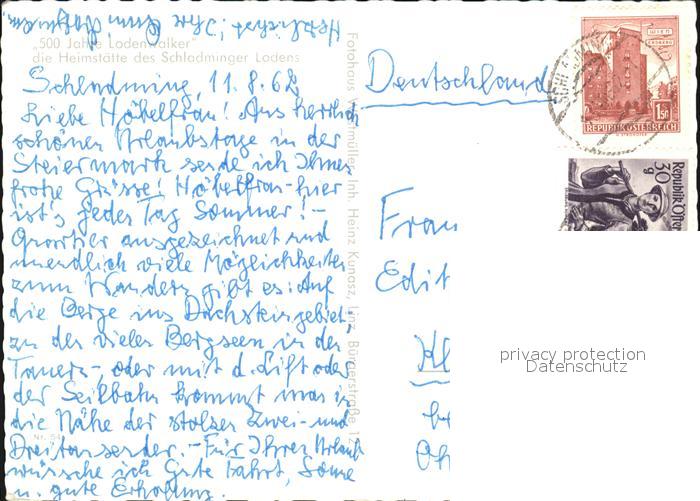 Herzlichst, Ihre
„500 Jahre Lodenwalker"
die Heimstätte des Schladminger Lodens
Schladming, 11. 8. 62
Liebe Höbelfrau! Aus herrlich
schönen Urlaubstage in der
Steiermark sende ich Ihnen
frohe Grüsse! Höbelfrau - hier
ist's jeden Tag Sommer! -
Quartier ausgezeichnet und
unendlich viele Möglichkeiten
zum Wandern gibt es: Auf
die Berge ins Dachsteingebiet,
zu den vielen Bergseen in den
Tauern - oder mit d. Lift oder
der Seilbahn kommt man in
die Nähe der stolzen Zwei- und
Dreitausender. - Für Ihren Urlaub
wünsche ich Gute Fahrt, Sonne
u. gute Erholung.
Nr. 54
Fotohaus Inh. Heinz Kunasz, Linz, Bürgerstraße 1
Deutschland
WIEN
ERDBERG
1.50
REPUBLIK ÖSTERREICH
Republik Öster
30
g
Frau
Edit
Kl
privacy protection
Datenschutz